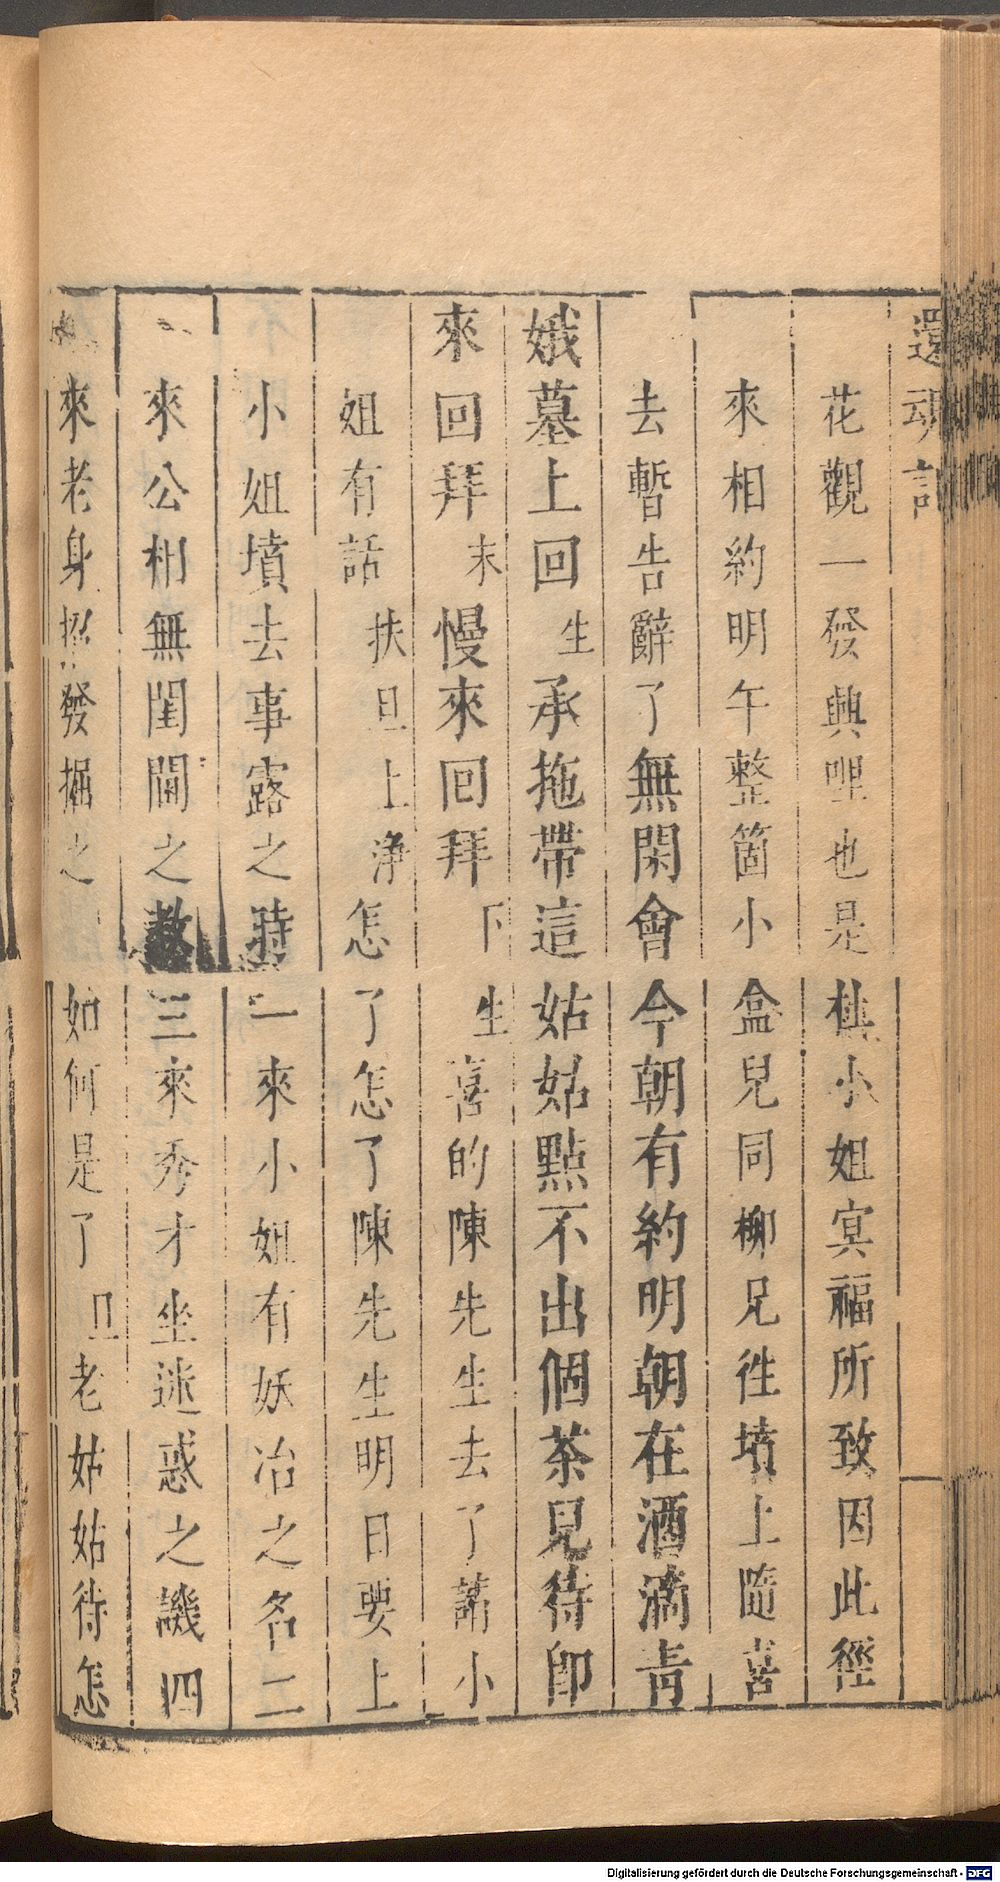 還魂記
花觀一發興哩也是杜小姐冥福所致因此徑
來相約明午整箇小盒兒同柳兄徃墳上隨喜
去暫告辭了無閑會今朝有約明朝在酒滴青
娥墓上回生承拖帶這姑姑點不出個茶兒待即
來回拜末慢來回拜下生喜的陳先生去了請小
姐有話扶旦上淨怎了怎了陳先生明日要上
小姐墳去事露之時一來小姐有妖冶之名二
來公相無閨閫之教三來秀才坐迷惑之譏四
來老身招發掘之如何是了旦老姑姑待怎
Digitalisierung gefördert durch die Deutsche Forschungsgemeinschaft - DFG